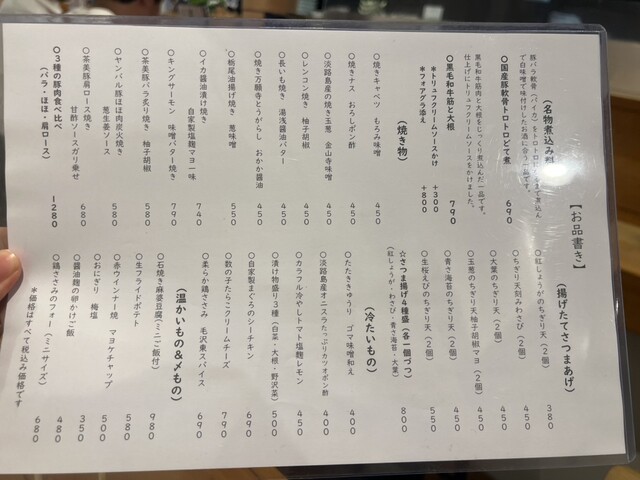 【お品書き】
（名物煮込み料
豚バラ軟骨（パイカ）をトロトロに
まで煮込ん
で白味噌で味付けしたお酒に合う一品です。
○国産豚軟骨トロトロどて煮 690
黒毛和牛筋肉と大根をじっくり煮込んだ一品です。
仕上げにトリュフクリームソースをかけました。
○黒毛和牛筋と大根 790
＊トリュフクリームソースかけ ＋300
＊フォアグラ添え ＋800
（焼き物）
○焼きキャベツ もろみ味噌 450
○焼きナス おろしポン酢 450
○淡路島産の焼き玉葱 金山寺味噌 450
○レンコン焼き 柚子胡椒 450
○長いも焼き 湯浅醤油バター 450
○焼き万願寺とうがらし おかか醤油 450
○栃尾油揚げ焼き 葱味噌 550
○イカ醤油漬け焼き
自家製塩麹マヨ一味 740
○キングサーモン 味噌バター焼き 790
○茶美豚バラ炙り焼き 柚子胡椒 580
○ヤンバル豚ほほ肉炭火焼き
葱生姜ソース 580
○茶美豚肩ロース焼き
甘酢ソースガリ乗せ 680
○３種の豚肉食べ比べ
（バラ・ほほ・肩ロース） 1280
（揚げたてさつまあげ）
○紅しょうがのちぎり天（２個） 380
○ちぎり天刻みわさび（２個） 450
○大葉のちぎり天（２個） 450
○玉葱のちぎり天柚子胡椒マヨ（２個） 450
○青さ海苔のちぎり天（２個） 450
○生桜えびのちぎり天（２個） 550
☆さつま揚げ４種盛（各一個づつ） 800
（紅しょうが・わさび・青さ海苔・大葉）
（冷たいもの）
○たたききゅうり ゴマ味噌和え 400
○淡路島産オニスラたっぷりカツオポン酢 400
○カラフル冷やしトマト塩麹レモン 450
○漬け物盛り３種（白菜・大根・野沢菜） 500
○自家製まぐろのシーチキン 690
○数の子たらこクリームチーズ 790
○柔らか鶏ささみ 毛沢東スパイス 690
（温かいもの＆〆もの）
○石焼き麻婆豆腐（ミニご飯付） 980
○生フライドポテト 580
○赤ウインナー焼 マヨケチャップ 500
○おにぎり 梅塩 350
○醤油麹の卵かけご飯 480
○鶏ささみのフォー（ミニサイズ） 680
＊価格はすべて税込み価格です